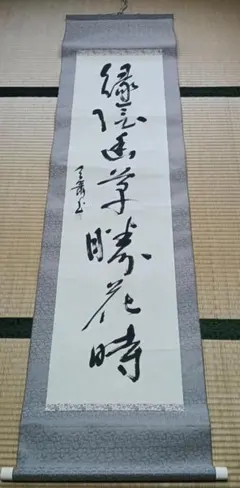 緑陰幽草勝花時